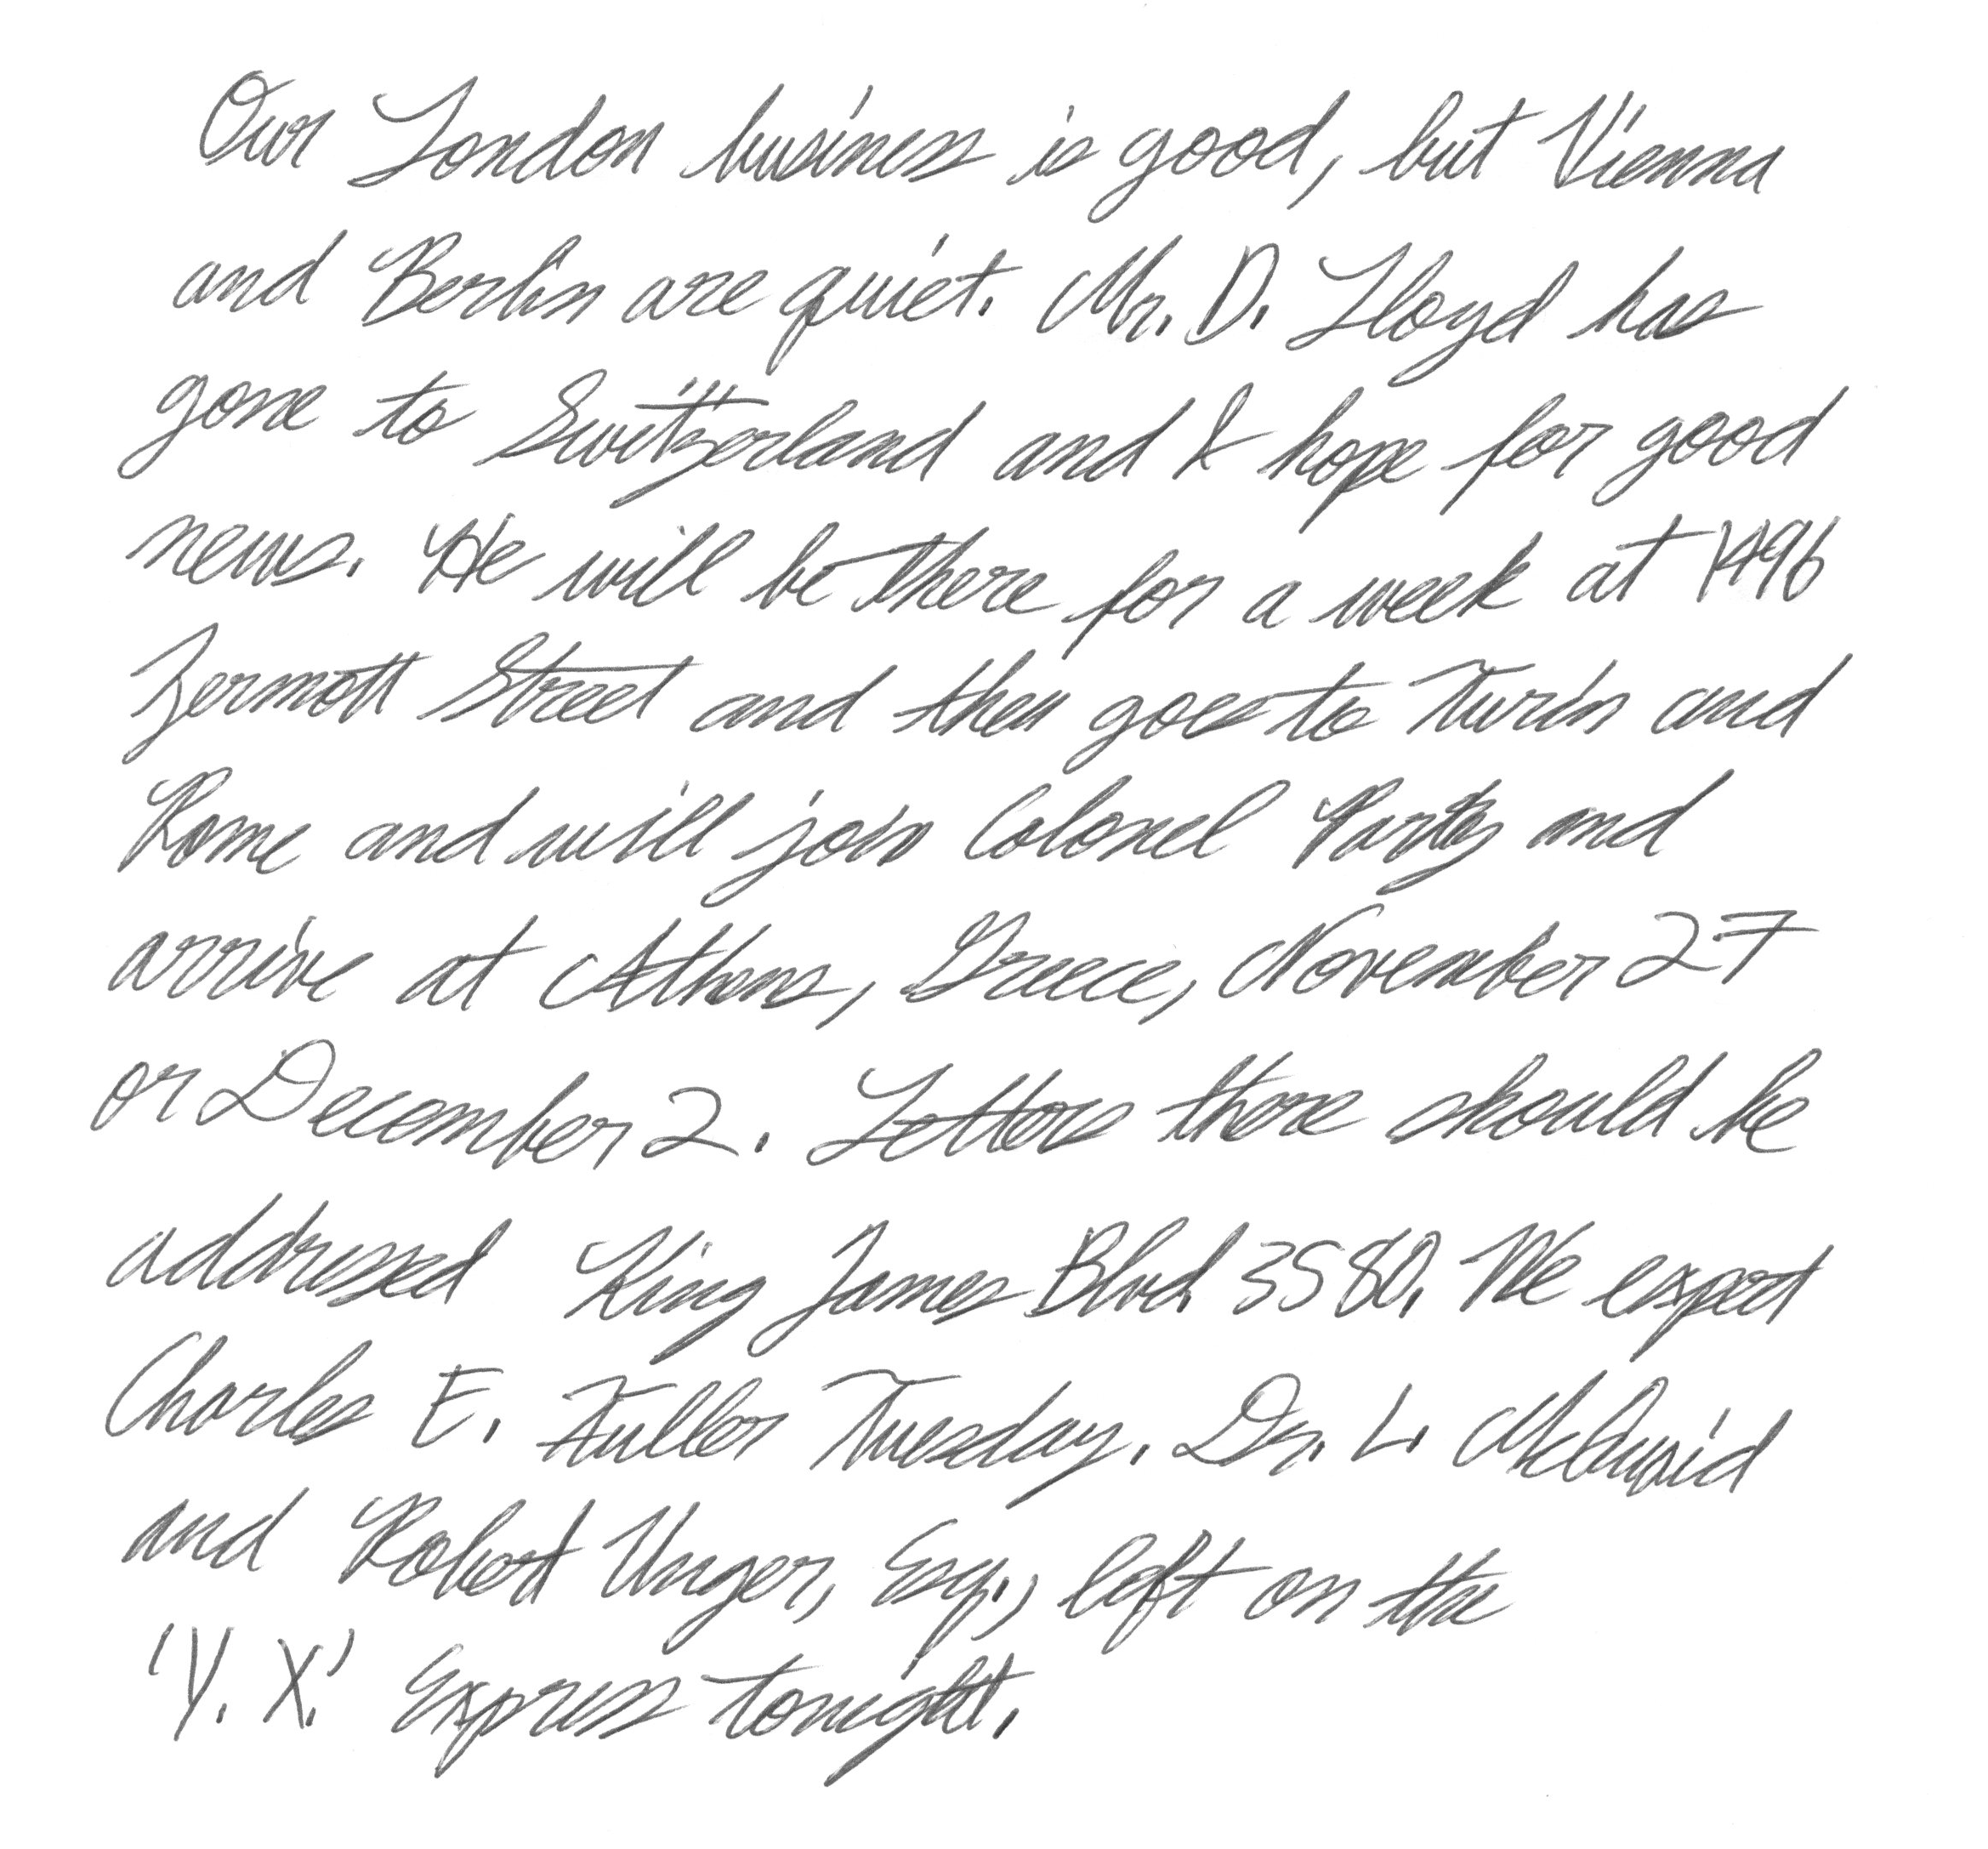 Our London business is good, but Vienna
and Berlin are quiet. Mr. D. Lloyd has
gone to Switzerland and I hope for good
news. He will be there for a week at 1496
Zermott Street and then goes to Turin and
Rome and will join Colonel Party and
arrive at Athens, Greece, November 27
or December 2. Letters there should be
addressed King James Blvd. 3580. We expect
Charles E. Fuller Tuesday. Dr. L. McQuaid
and Robert Unger, Esq., left on the
'Y. X.' Express tonight.